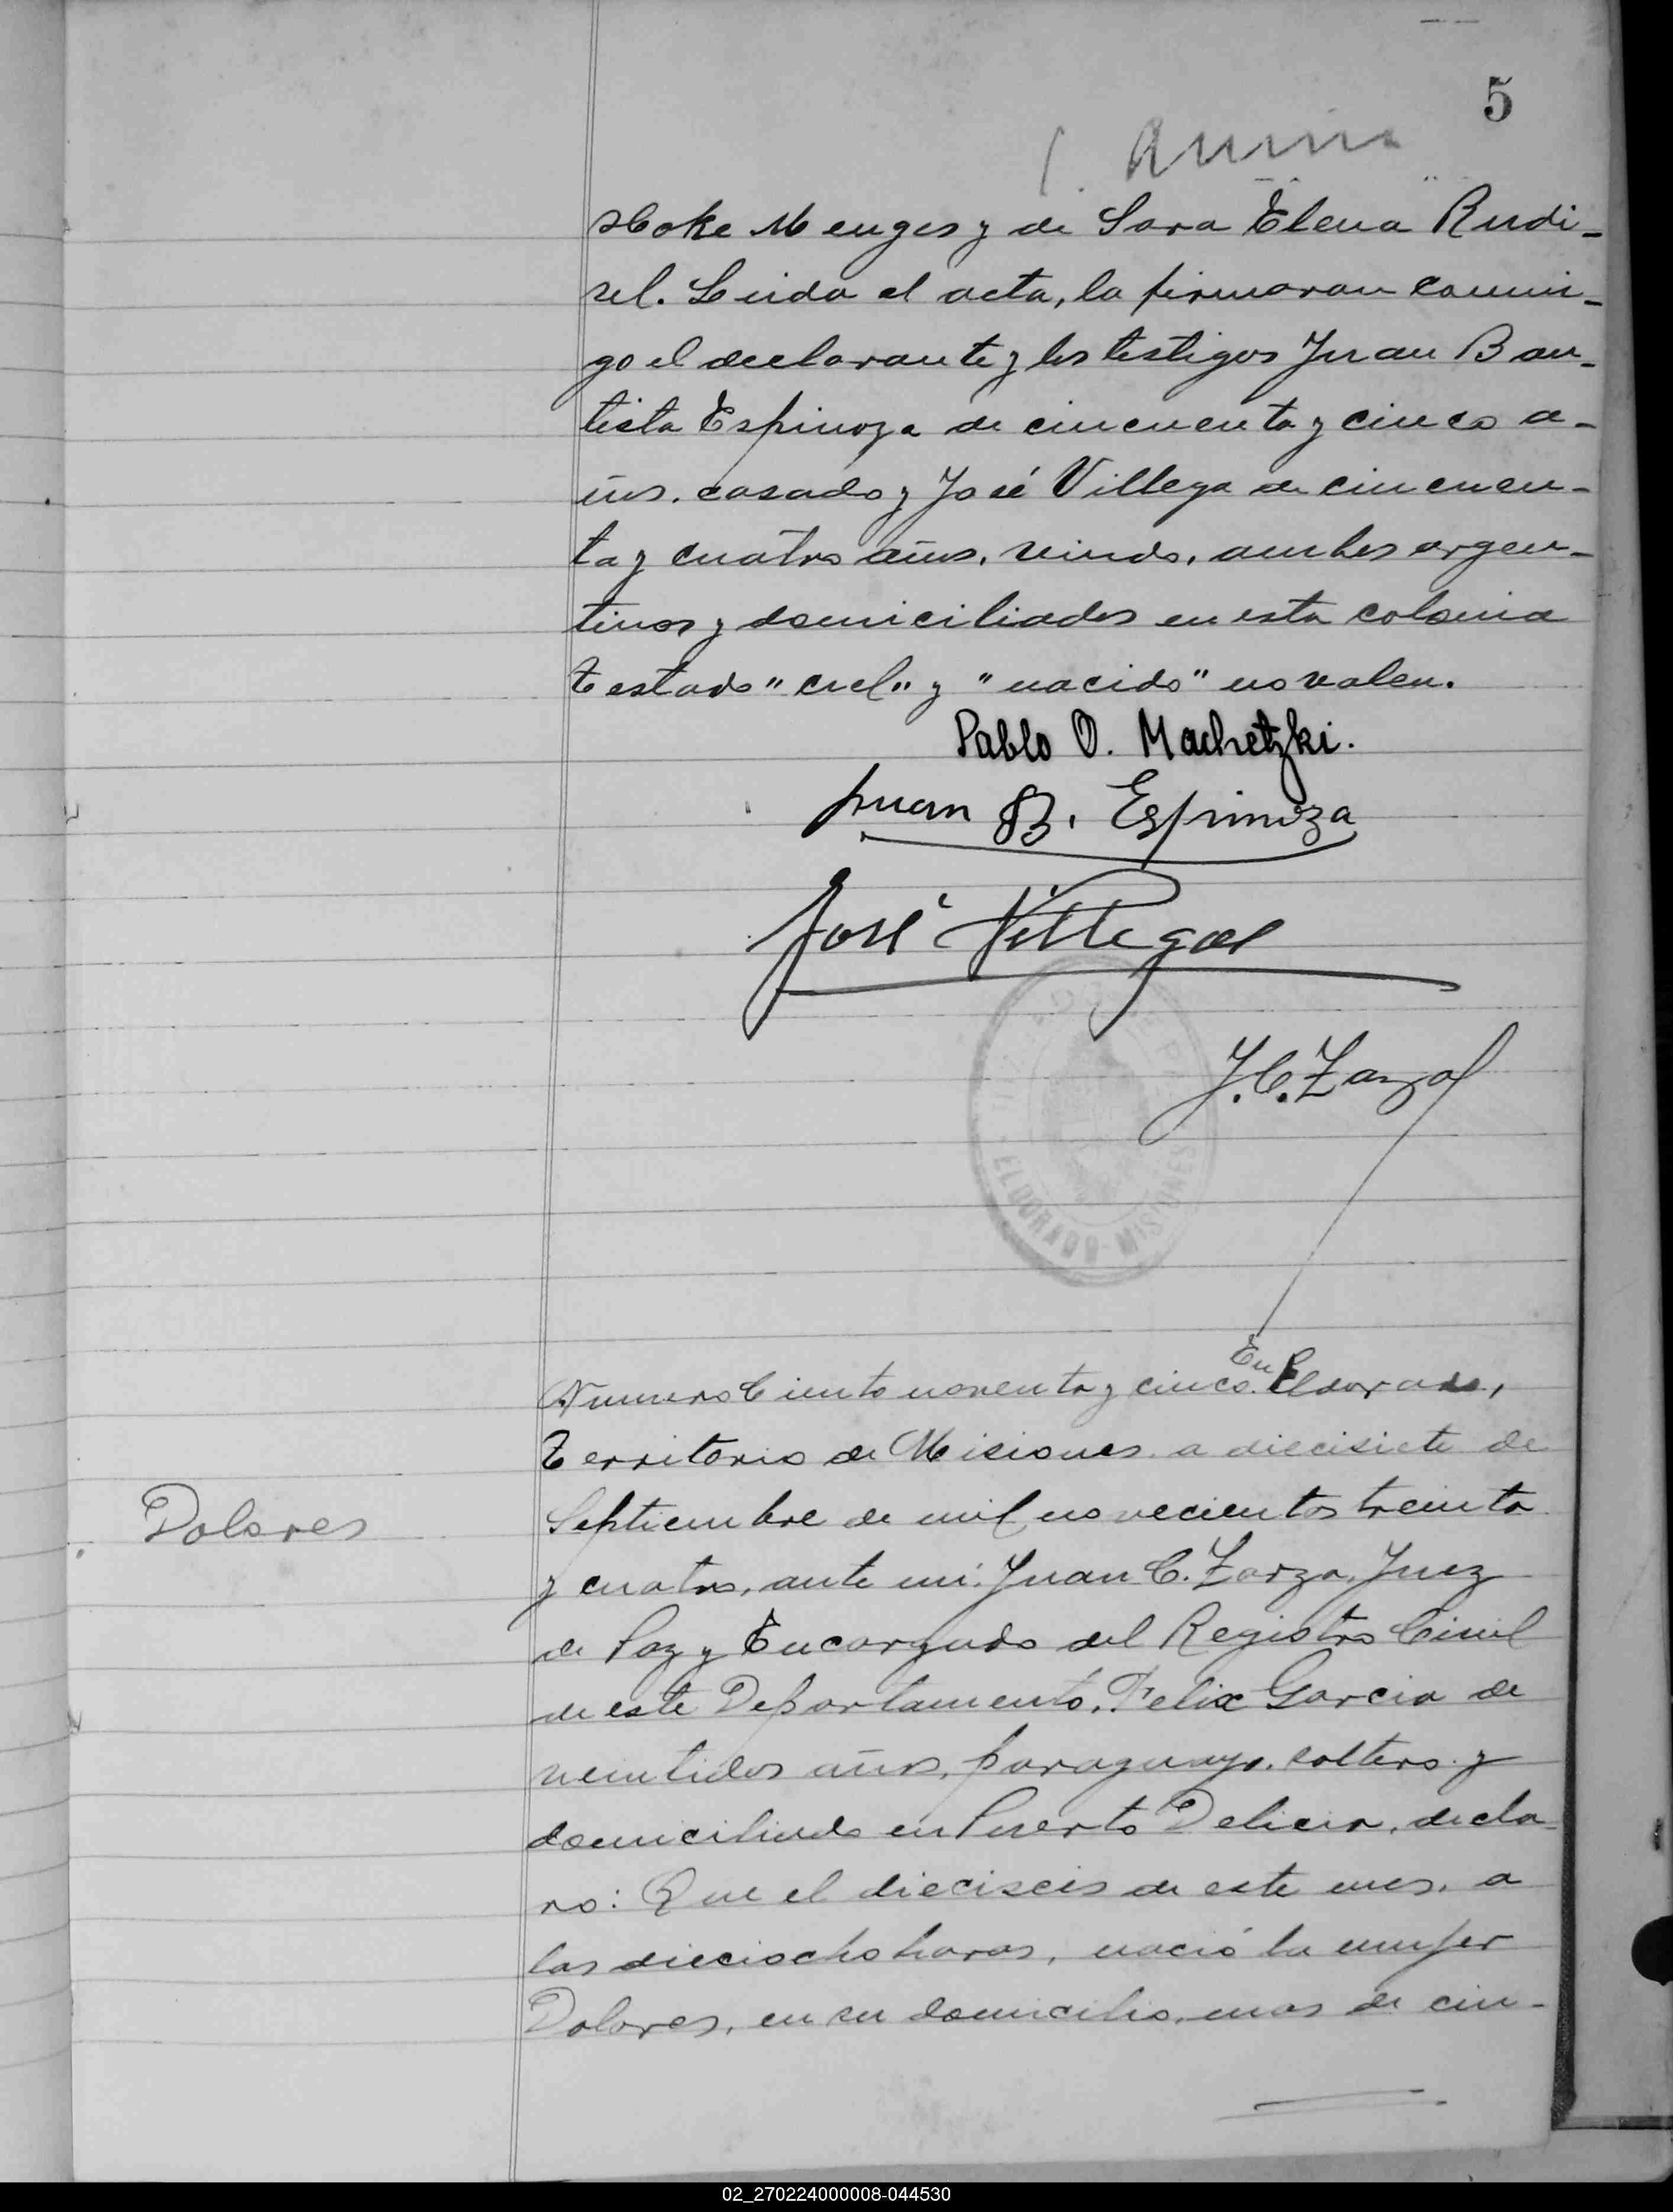 5
Hoke Menges y de Sara Elena Rudi-
sel. Leida el acta, la firmaron conmi-
go el declarante y los testigos Juan Bau-
tista Espinoza de cincuenta y cinco a-
ños. casado y José Villega de cincuen-
ta y cuatro años. viudo. ambos argen-
tinos y domiciliados en esta colonia
Testado "cul" y "nacido" no valen.
Pablo O. Machetzki.
Juan B. Espinoza
José Villegas
J.C. Zarza
ELDORADO - MISIONES
En
Numero Ciento noventa y cinco. Eldorado,
Territorio de Misiones a diecisiete de
Dolores
Septiembre de mil novecientos treinta
y cuatro, ante mi: Juan C. Zarza, Juez
de Paz y Encargado del Registro Civil
de este Departamento, Felix Garcia de
veintidos años, paraguayo. soltero y
domiciliado en Puerto Delicia, decla-
ro: Que el dieciseis de este mes, a
las dieciocho horas, nació la mujer
Dolores, en su domicilio, mas de cin-
02_270224000008-044530